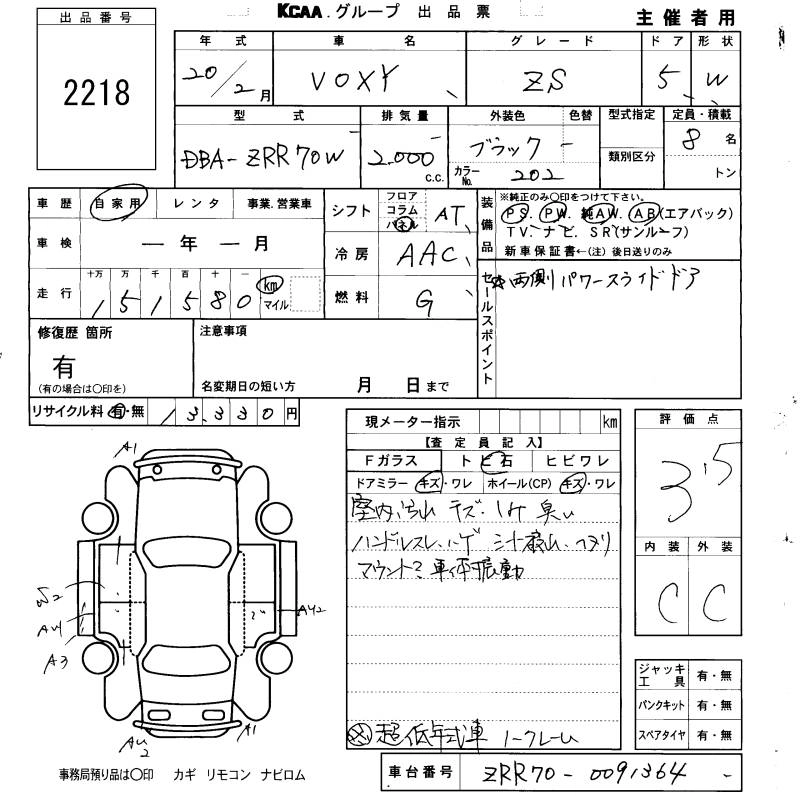 KCAA.グループ 出品票
主催者用
出品番号
2218
年式 車名 グレード ドア 形状
20/2月 VOXY ZS 5 W
型式 排気量 外装色 色替 型式指定 定員・積載
DBA-ZRR70W 2.000 c.c. ブラック - 8名
カラーNo. 202 類別区分 トン
車歴 自家用 レンタ 事業.営業車
シフト フロア コラム パネル AT
装備品 ※純正のみ〇印をつけて下さい。
PS. PW. 純AW. AB(エアバック)
TV.ナビ. SR(サンルーフ)
新車保証書←(注)後日送りのみ
車検 ―年―月
冷房 AAC
走行 十万 万 千 百 十 一
151580 km マイル
燃料 G
セールスポイント 両側パワースライドドア
修復歴 箇所
有
(有の場合は〇印を)
注意事項
名変期日の短い方 月 日まで
リサイクル料 有・無 13.330円
現メーター指示 km
【査定員記入】
Fガラス トビ石 ヒビワレ
ドアミラー キズ・ワレ ホイール(CP) キズ・ワレ
室内汚れ キズ・コゲ 臭い
ハンドルスレ、ハゲ シート破れ・ヘタリ
マウント? 車体振動
超低年式車 ノークレーム
評価点
3.5
内装 外装
C C
ジャッキ工具 有・無
パンクキット 有・無
スペアタイヤ 有・無
A1
W2
AU1
A3
AU2
AU2
A1
事務局預り品は〇印 カギ リモコン ナビロム
車台番号 ZRR70-0091364